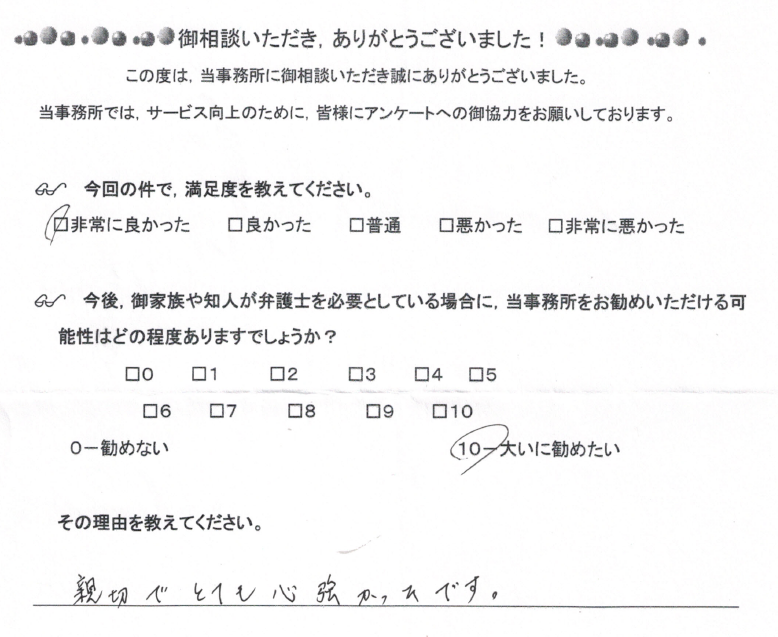 御相談いただき，ありがとうございました！
この度は，当事務所に御相談いただき誠にありがとうございました。
当事務所では，サービス向上のために，皆様にアンケートへの御協力をお願いしております。
今回の件で，満足度を教えてください。
☐非常に良かった ☐良かった ☐普通 ☐悪かった ☐非常に悪かった
今後，御家族や知人が弁護士を必要としている場合に，当事務所をお勧めいただける可
能性はどの程度ありますでしょうか？
☐0 ☐1 ☐2 ☐3 ☐4 ☐5
☐6 ☐7 ☐8 ☐9 ☐10
0－勧めない 10－大いに勧めたい
その理由を教えてください。
親切でとても心強かったです。